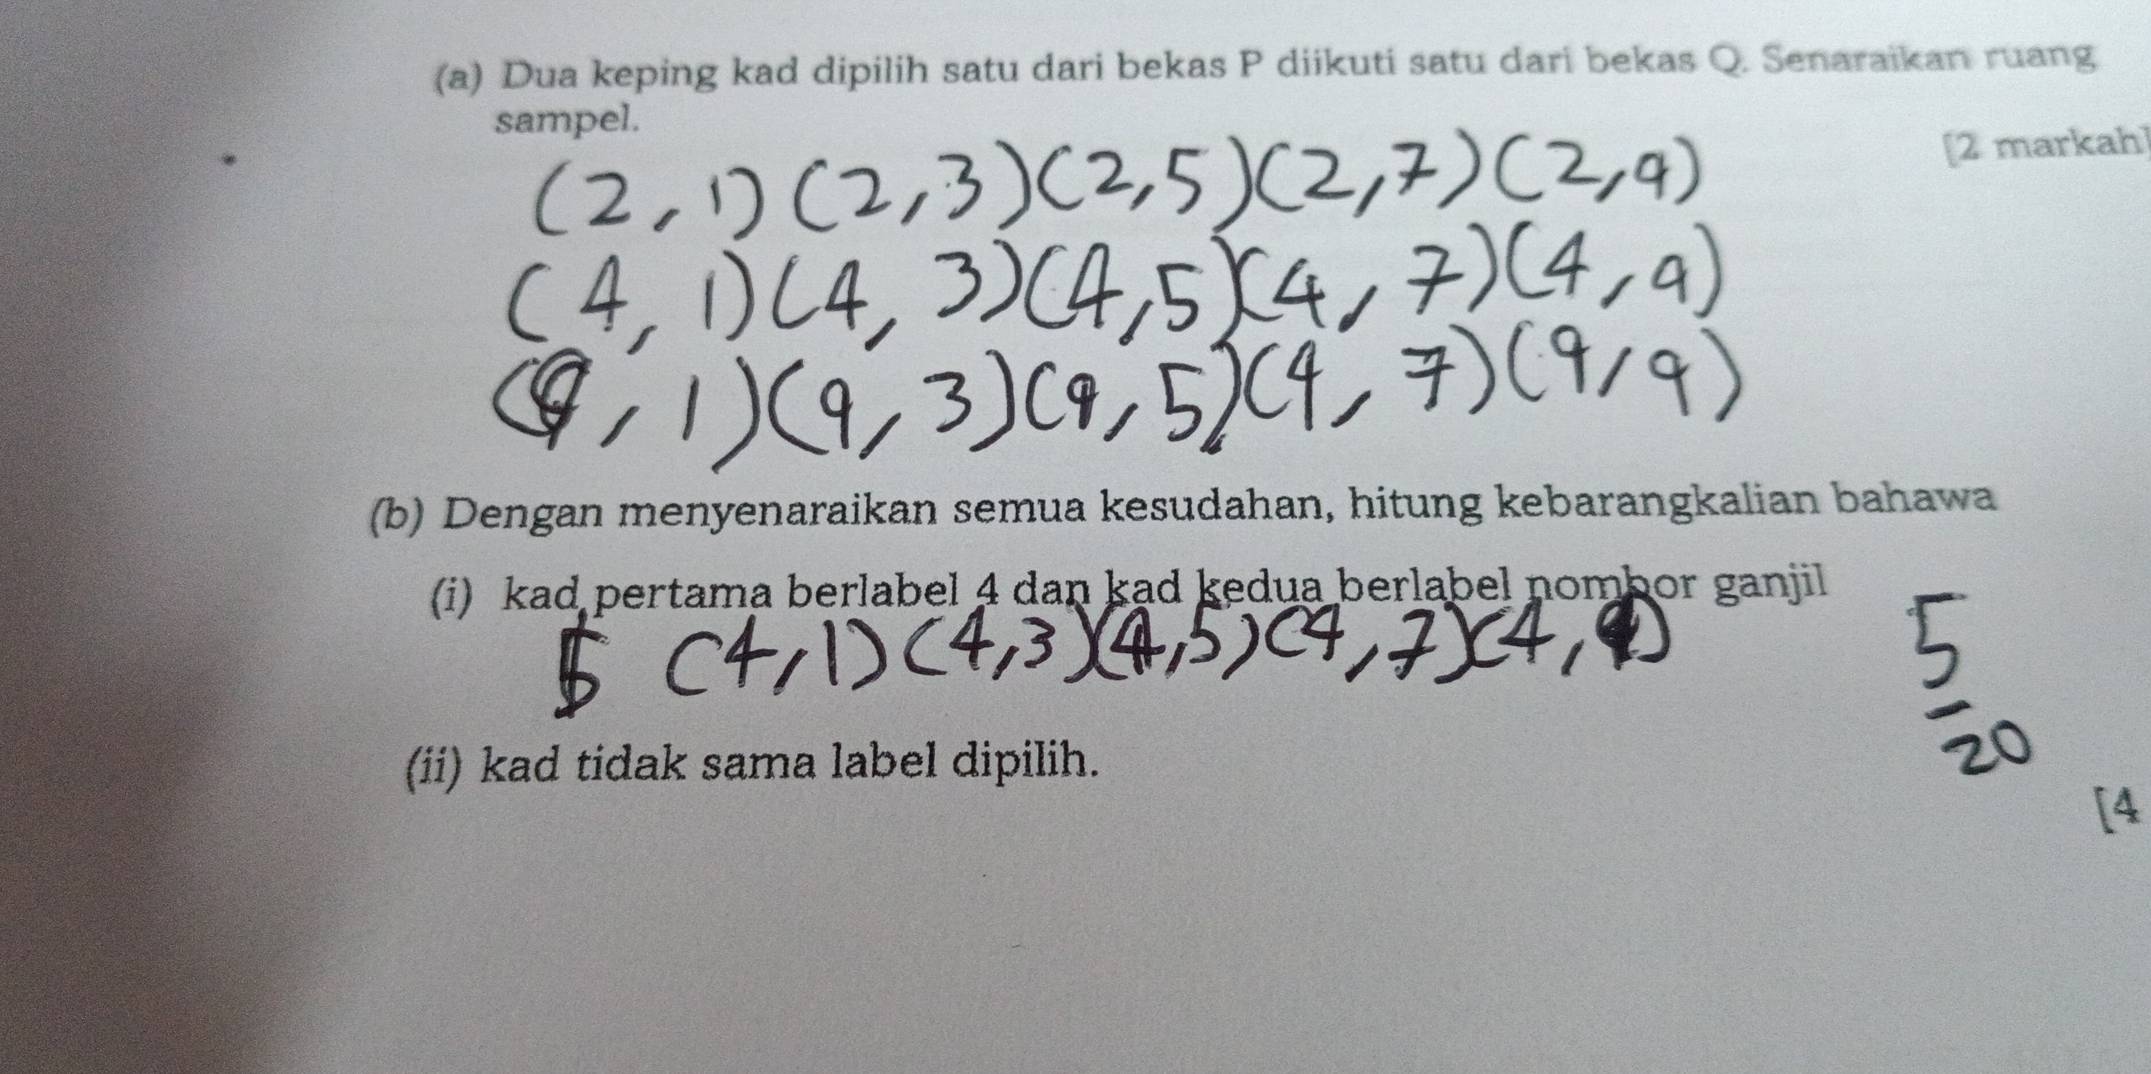 (a) Dua keping kad dipilih satu dari bekas P diikuti satu dari bekas Q. Senaraikan ruang
sampel.
[2 markah]
(2, 1) (2, 3) (2, 5) (2, 7) (2, 9)
(4, 1) (4, 3) (4, 5) (4, 7) (4, 9)
(9, 1) (9, 3) (9, 5) (9, 7) (9, 9)
(b) Dengan menyenaraikan semua kesudahan, hitung kebarangkalian bahawa
(i) kad pertama berlabel 4 dan kad kedua berlabel nombor ganjil
(4, 1) (4, 3) (4, 5) (4, 7) (4, 9)
5
20
(ii) kad tidak sama label dipilih.
[4